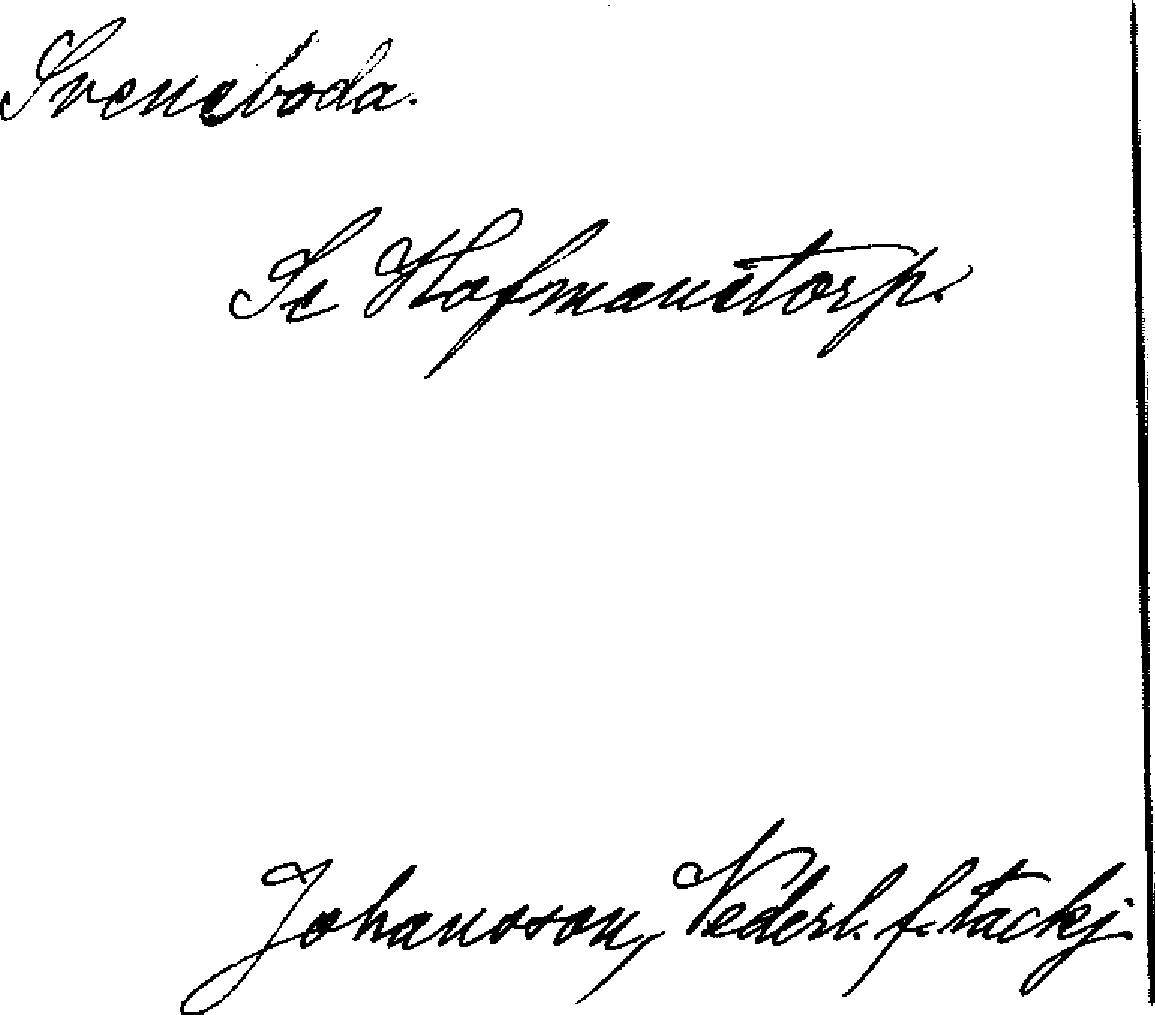 Svensboda.
Se Hofmanstorp.
Johansson, Nederl. f. tackj.